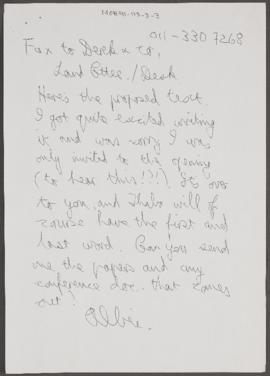 011-330 7268
Fax to Derek & co,
Land Cttee./Desk
Here's the proposed text.
I got quite excited writing
it and was sorry I was
only invited to the opening
(to hear this!!!). It's over
to you, and Thabo will of
course have the first and
last word. Can you send
me the papers and any
conference doc. that comes
out?
Albie.